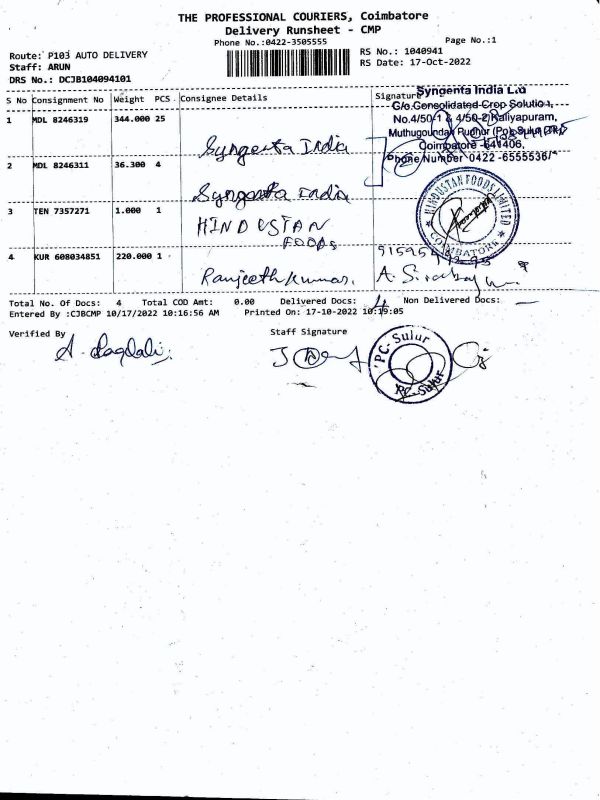 THE PROFESSIONAL COURIERS, Coimbatore
Delivery Runsheet - CMP
Phone No.:0422-3505555
Page No.:1
Route: P103 AUTO DELIVERY
RS No.: 1040941
Staff: ARUN
RS Date: 17-Oct-2022
DRS No.: DCJB104094101
S No Consignment No Weight PCS. Consignee Details Signature
Syngenta India Ltd
C/o.Consolidated Crop Solution,
1 MDL 8246319 344.000 25 Syngenta India
No.4/50-1 & 4/50-2)Kaliyapuram,
Muthugoundan Pudhur (Po), Sulur (TK)
Coimbatore -641406,
Phone Number 0422 -6555536/
2 MDL 8246311 36.300 4 Syngenta India
3 TEN 7357271 1.000 1 HINDUSTAN FOODS
HINDUSTAN FOODS LIMITED
COIMBATORE
4 KUR 608034851 220.000 1 Ranjeethkumar.
Total No. Of Docs: 4 Total COD Amt: 0.00 Delivered Docs: 4 Non Delivered Docs: —
Entered By :CJBCMP 10/17/2022 10:16:56 AM Printed On: 17-10-2022 10:19:05
Verified By
Staff Signature
PC- Sulur
PC- Sulur